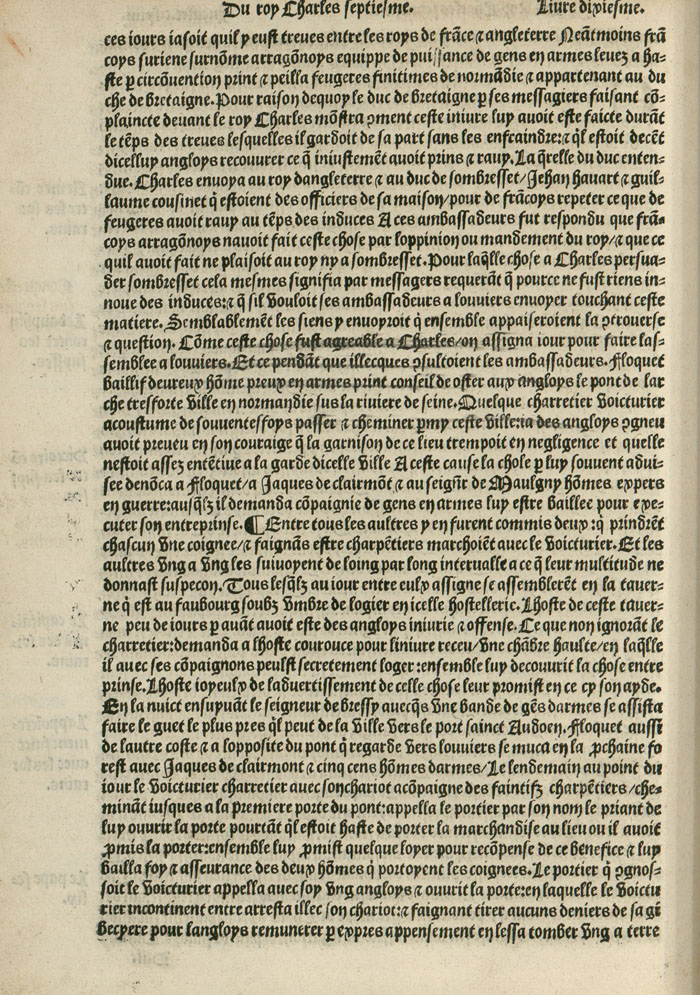 Du roy Charles septiesme. Liure dixiesme.
ces iours iasoit quil y eust treues entre les roys de frãce ⁊ angleterre Neãtmoins frã
coys suriene surnõme arragõnoys equippe de puissance de gens en armes leuez a ha-
ste p circõuention print ⁊ peilla feugeres finitimes de normãdie ⁊ appartenant au du
che de bretaigne. Pour raison dequoy le duc de bretaigne p ses messagiers faisant cõ-
plaincte deuant le roy Charles mõstra ꝯment ceste iniure luy auoit este faicte durãt
le tẽps des treues lesquelles il gardoit de sa part sans les enfraindre: ⁊ q̃l estoit decẽt
dicelluy angloys recouurer ce q̃ iniustemẽt auoit prins ⁊ rauy. La q̃relle du duc enten-
due. Charles enuoya au roy dangleterre ⁊ au duc de sombresset/ Jehan hauart ⁊ guil-
laume cousinet q̃ estoient des officiers de sa maison/ pour de frãcoys repeter ce que de
feugeres auoit rauy au tẽps des induces A ces ambassadeurs fut respondu que frã-
coys arragõnoys nauoit fait ceste chose par loppinion ou mandement du roy/ ⁊ que ce
quil auoit fait ne plaisoit au roy ny a sombresset. Pour laq̃lle chose a Charles persua-
der sombresset cela mesmes signifia par messagers requerãt q̃ pource ne fust riens in-
noue des induces: ⁊ q̃ sil vouloit ses ambassadeurs a louuiers enuoyer touchant ceste
matiere. Semblablemẽt les siens y enuoyroit q̃ ensemble appaiseroient la ꝯtrouerse
⁊ question. Cõme ceste chose fust agreable a Charles/ on assigna iour pour faire las-
semblee a louuiers. Et ce pendãt que illecques ꝯsultoient les ambassadeurs. Floquet
baillif deureux hõme preux en armes print conseil de oster aux angloys le pont de lar
che tresforte ville en normandie sus la riuiere de seine. Quelque charretier voicturier
acoustume de souuentesfoys passer ⁊ cheminer p my ceste ville: ia des angloys ꝯgneu
auoit preueu en son couraige q̃ la garnison de ce lieu trempoit en negligence et quelle
nestoit assez entẽtiue a la garde dicelle ville A ceste cause la chose p luy souuent adui-
see denõca a Floquet/ a Jaques de clairmõt ⁊ au seign̄r de Maulgny hõmes expers
en guerre: ausq̃lz il demanda cõpaignie de gens en armes luy estre baillee pour exe-
cuter son entreprinse. ¶ Entre tous les aultres y en furent commis deux: q̃ prindrẽt
chascun vne coignee/ ⁊ faignãs estre charpẽtiers marchoiẽt auec le voicturier. Et les
aultres vng a vng les suiuoyent de loing par long interualle a ce q̃ leur multitude ne
donnast suspecon. Tous lesq̃lz au iour entre eulx assigne se assemblerẽt en la tauer-
ne q̃ est au faubourg soubz vmbre de logier en icelle hostellerie. Lhoste de ceste tauer-
ne peu de iours p auãt auoit este des angloys iniurie ⁊ offense. Ce que non ignorãt le
charretier: demanda a lhoste courouce pour liniure receu/ vne chãbre haulte/ en laq̃lle
il auec ses cõpaignons peulst secretement loger: ensemble luy decouurit la chose entre
prinse. Lhoste ioyeulx de laduertissement de celle chose leur promist en ce cy son ayde.
En la nuict ensuyuãt le seigneur de bressy auecq̃s vne bande de gẽs darmes se assista
faire le guet le plus pres q̃l peut de la ville vers le port sainct Audoen. Floquet aussi
de lautre coste ⁊ a lopposite du pont q̃ regarde vers louuiers se muca en la ꝓchaine fo
rest auec Jaques de clairmont ⁊ cinq cens hõmes darmes/ Le lendemain au point du
iour le voicturier charretier auec son chariot acõpaigne des faintifz charpẽtiers/ che-
minãt iusques a la premiere porte du pont: appella le portier par son nom le priant de
luy ouurir la porte pourtãt q̃l estoit haste de porter la marchandise au lieu ou il auoit
ꝓmis la porter: ensemble luy ꝓmist quelque loyer pour recõpense de ce benefice ⁊ luy
bailla foy ⁊ asseurance des deux hõmes q̃ portoyent les coignees. Le portier q̃ ꝯgnos-
soit le voicturier appella auec soy vng angloys ⁊ ouurit la porte: en laquelle le voictu
rier incontinent entre arresta illec son chariot: ⁊ faignant tirer aucuns deniers de sa gi
becyere pour langloys remunerer p expres appensement en lessa tomber vng a terre